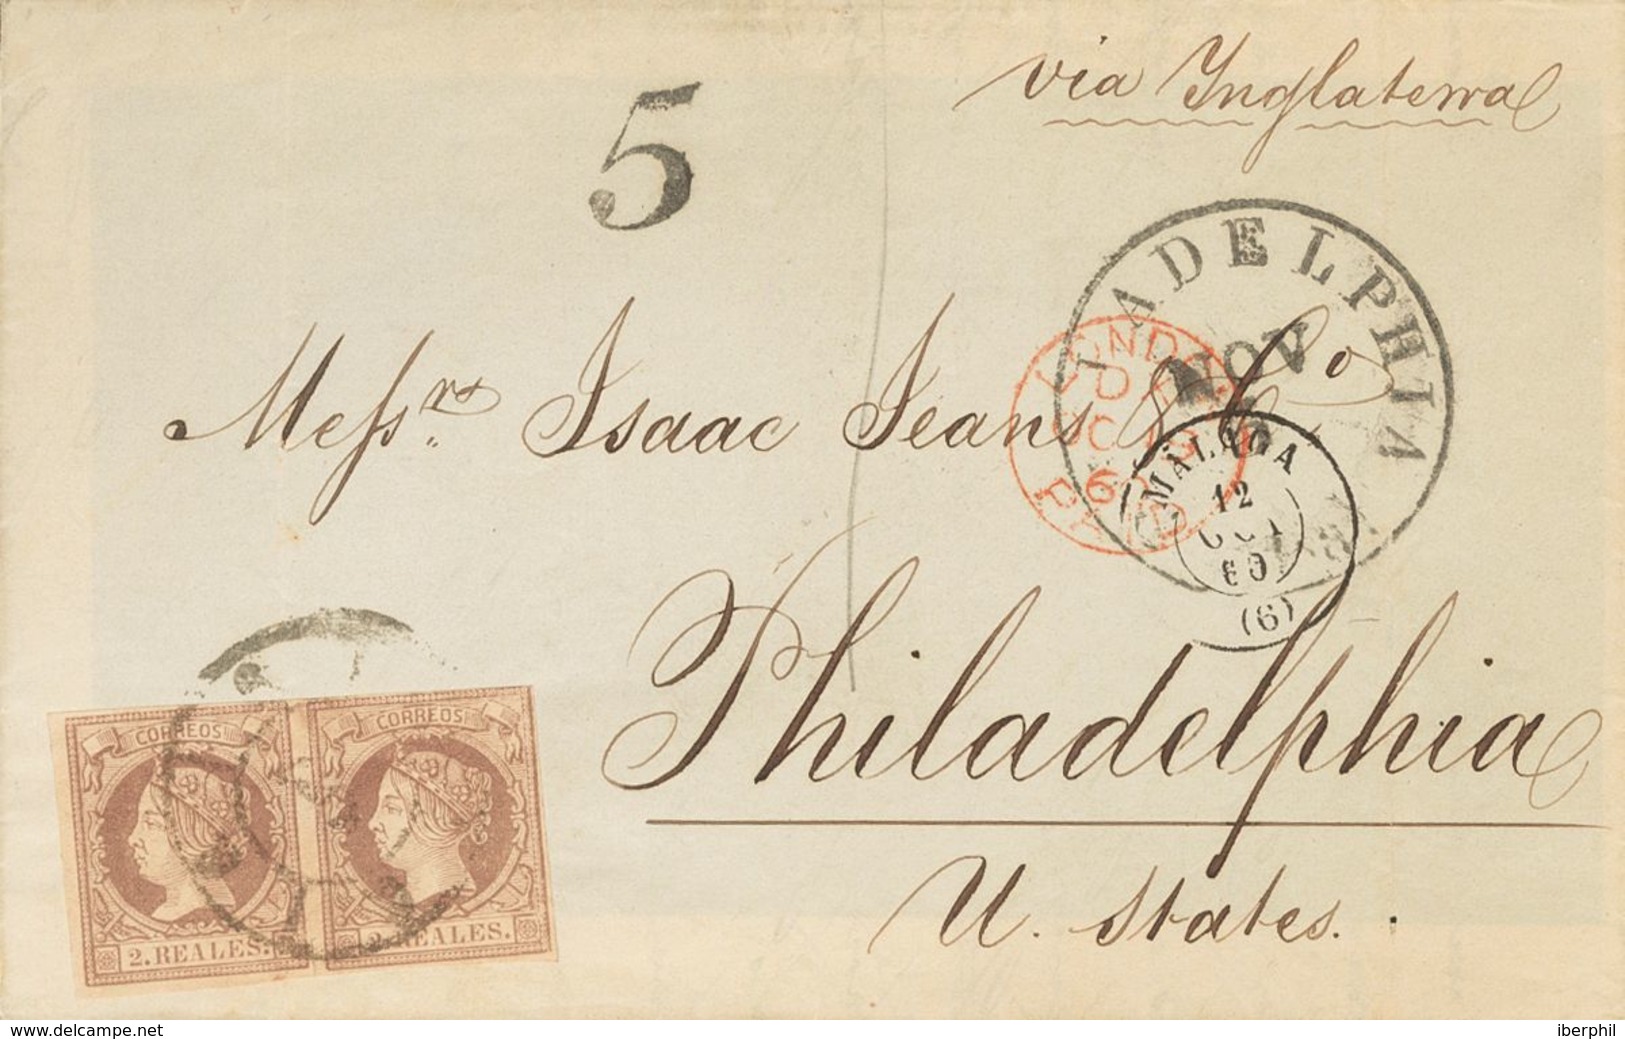 via Inglaterra
5
PHILADELPHIA
NOV
LONDON
OC 19
60
PAID
MÁLAGA
12
OCT
60
(6)
Messrs. Isaac Jeans & Co
Philadelphia
U. States.
CORREOS
2. REALES.
CORREOS
2. REALES.
www.delcampe.net
iberphil